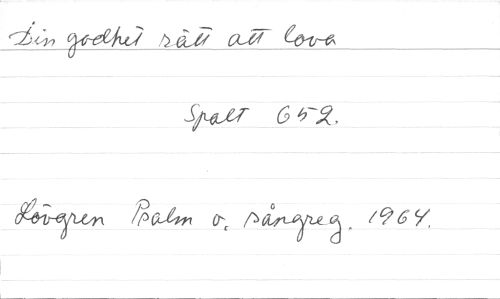 Din godhet rätt att lova
Spalt 652.
Lövgren Psalm o. sångreg. 1964.